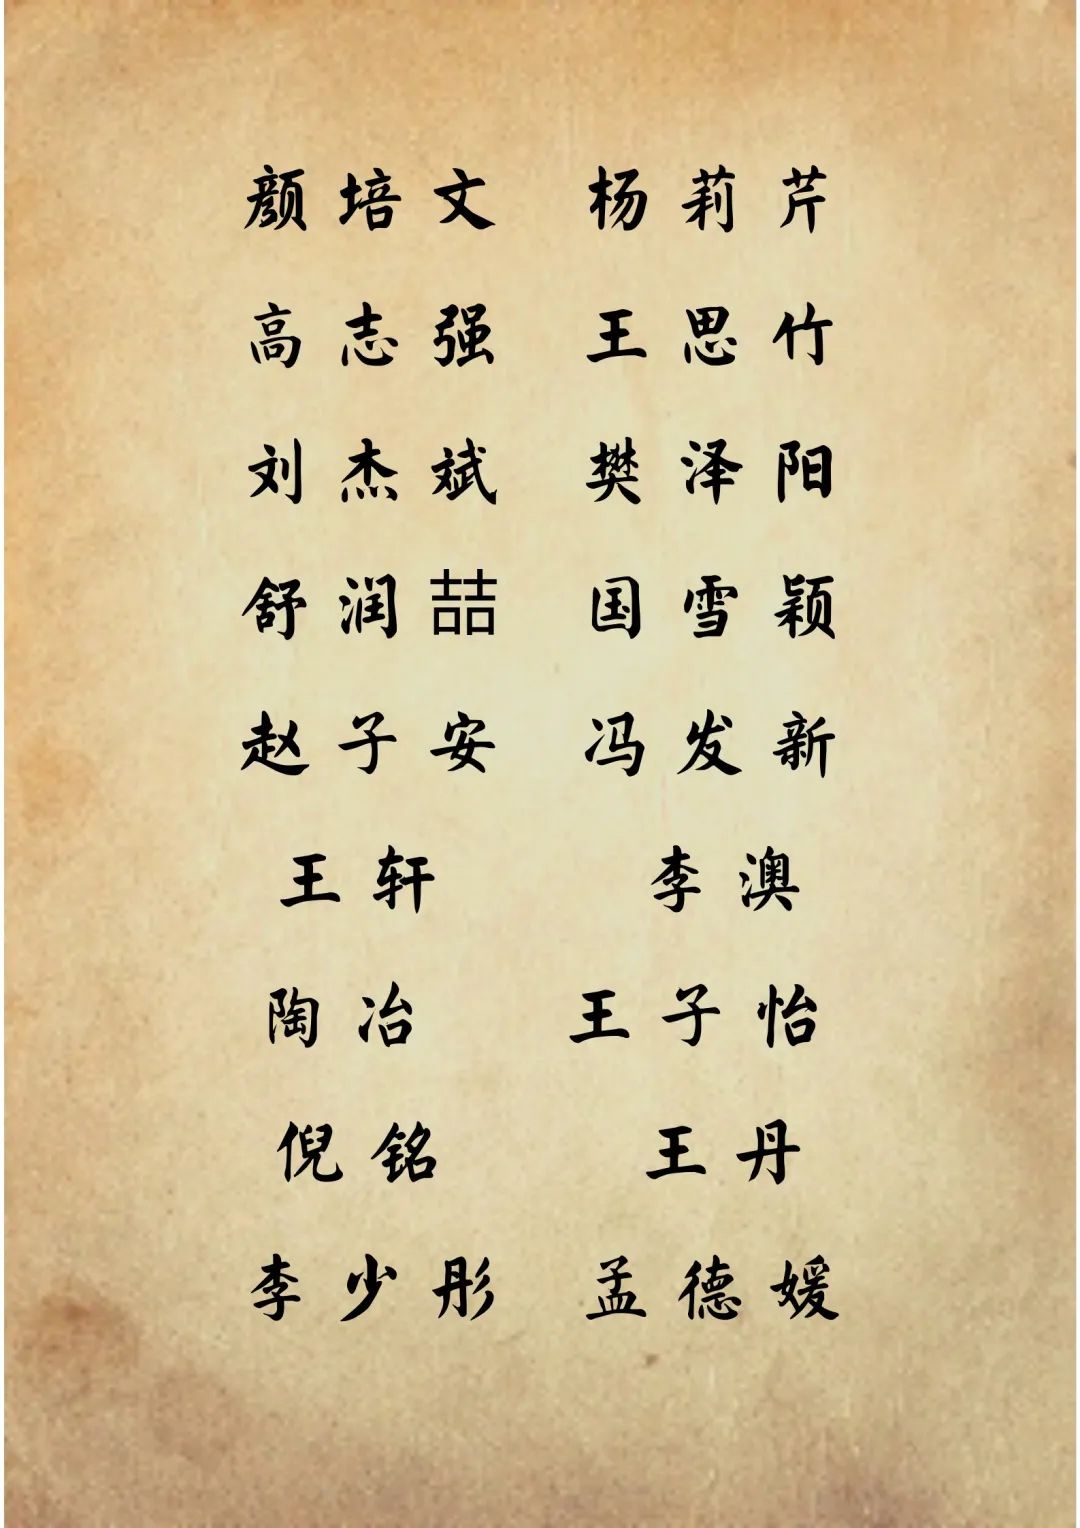 颜培文 杨莉芹
高志强 王思竹
刘杰斌 樊泽阳
舒润喆 国雪颖
赵子安 冯发新
王轩 李澳
陶冶 王子怡
倪铭 王丹
李少彤 孟德媛